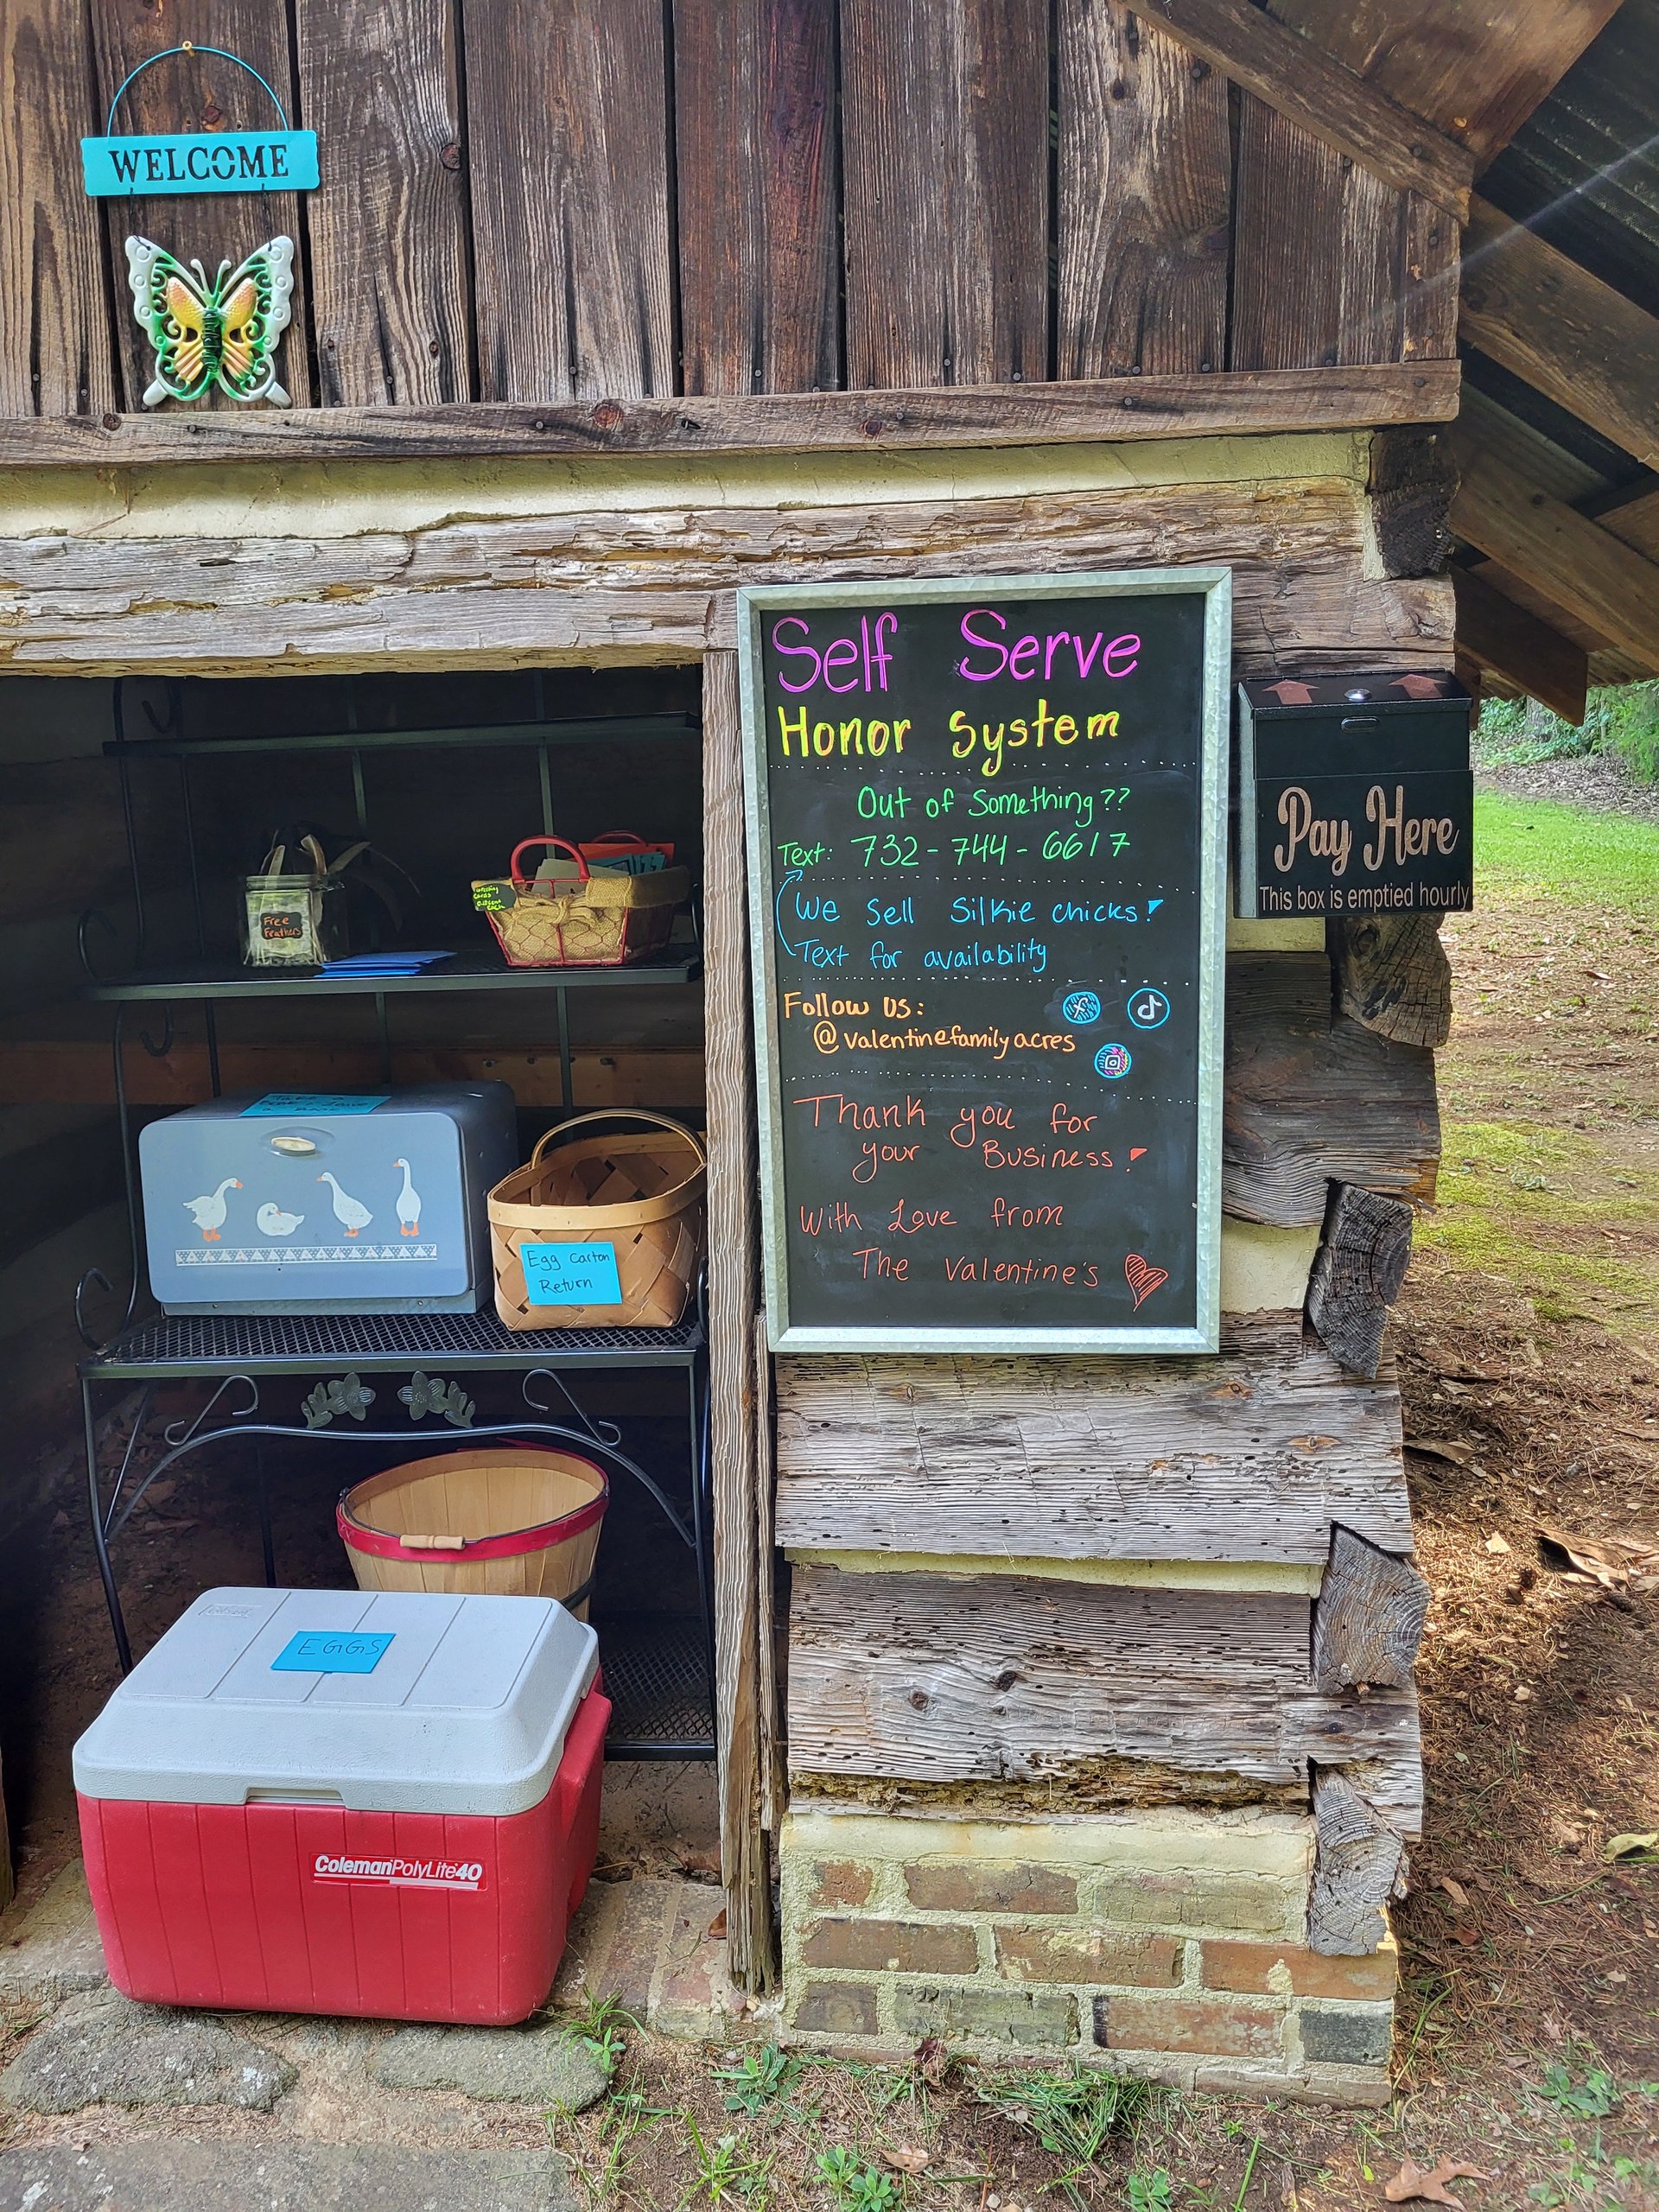 WELCOME
Self Serve
Honor System
Out of Something??
Text: 732-744-6617
We Sell Silkie chicks!
Text for availability
Follow Us:
@valentinefamilyacres
Thank you for
your Business!
With Love from
The Valentine's
Pay Here
This box is emptied hourly
Free
Feathers
Take a
Egg Carton
Return
EGGS
Coleman PolyLite 40